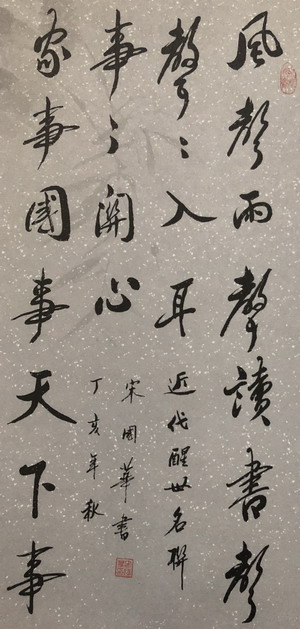 風聲雨聲讀書聲
聲〻入耳
家事國事天下事
事〻關心
近代醒世名聯
宋 華書
丁亥年秋